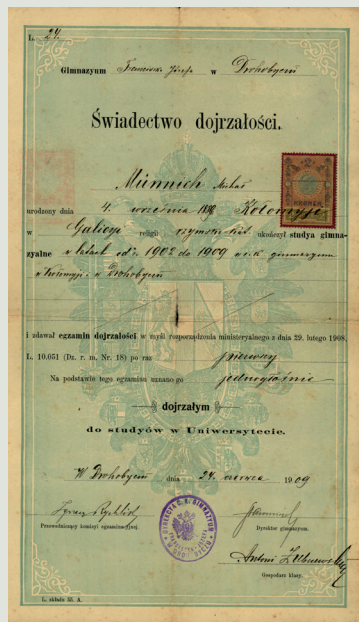 L. 24.
Gimnazyum Franciszka Józefa w Drohobyczu
Świadectwo dojrzałości.
Münnich Michał
urodzony dnia 4. września 18 Kołomyje
w Galicyi religii rzymsko-kat. ukończył studya gimna-
zyalne w latach od r. 1902 do 1909 w c.k. gimnazyum
w Kołomyi i w Drohobyczu
i zdawał egzamin dojrzałości w myśl rozporządzenia ministeryalnego z dnia 29. lutego 1908,
L. 10.051 (Dz. r. m. Nr. 18) po raz pierwszy
Na podstawie tego egzaminu uznano go jednogłośnie
dojrzałym
do studyów w Uniwersytecie.
W Drohobyczu dnia 24. czerwca 1909
Przewodniczący komisyi egzaminacyjnej.
Dyrektor gimnazyum.
Antoni
Gospodarz klasy.
L. składu 55. A.